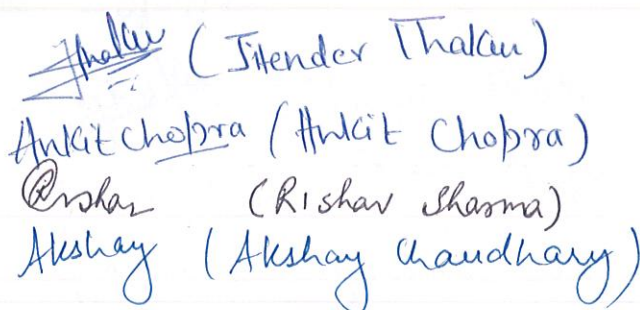 Jthakur (Jitender Thakur)
Ankit Chopra (Ankit Chopra)
Rishav (Rishav Sharma)
Akshay (Akshay Chaudhary)